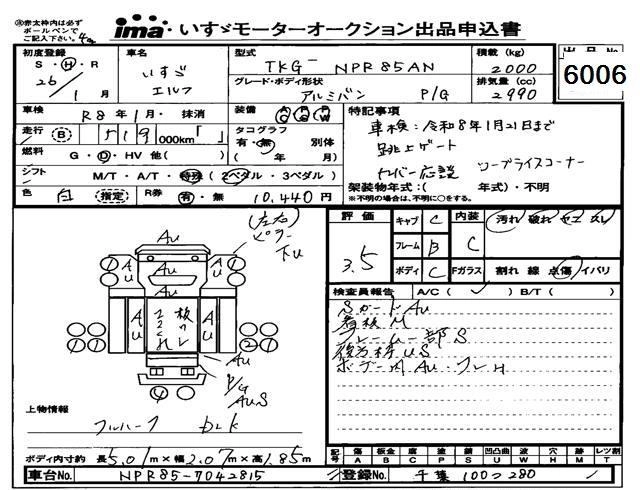 ※赤太枠内は必ずボールペンでご記入下さい。
ima いすゞモーターオークション出品申込書
初度登録 車名 型式 積載(kg) 出品No.
S・H・R いすゞ TKG- NPR85AN 2000 6006
26/1月 エルフ グレード・ボディ形状 排気量(cc)
アルミバン P/G 2990
車検 R8年1月・抹消 装備 AC PS PW 特記事項
走行 (B) 519,000km「 」 タコグラフ 有・無 別体 車検:令和8年1月21日まで
燃料 G・D・HV 他( ) ( 年 月) 跳上ゲート
シフト M/T・A/T・特殊 (2ペダル・3ペダル) ワープライスコーナー
色 白 (指定) R券 有・無 10,440円 架装物年式:( 年式)・不明
※不明の場合は、不明に○をする。
評価 キャブ C 内装 汚れ 破れ ヤニ スレ
3.5 フレーム B C
ボディ C Fガラス 割れ 線 点傷 イバリ
(左右)
ピラー
下U
Au
Au Au Au
Au 板のレ Au
Au
P/G
AuS
検査員報告 A/C( ✓ ) B/T( )
SガードAu
看板M
フレーム一部S
後方枠US
ボデー内Au・フレH
上物情報
フルハーフ blk
ボディ内寸約 長5.01m×幅2.07m×高1.85m
記号 傷 A 板金 B 腐 C 塗 P 錆 S 凹凸曲 U 波 W 穴 H 跡 M 欠 T レンズ割
車台No. NPR85-7042815 登録No. 千葉100つ280